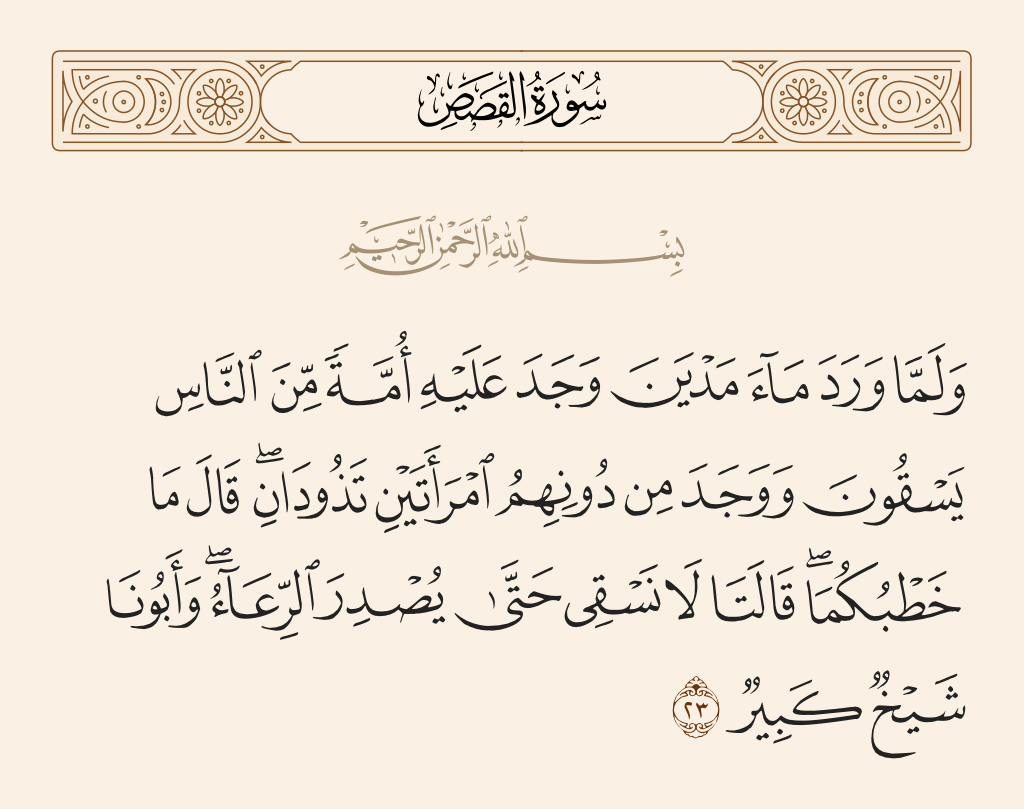 سُورَةُ القَصَصِ
بِسْمِ ٱللَّهِ ٱلرَّحْمَٰنِ ٱلرَّحِيمِ
وَلَمَّا وَرَدَ مَآءَ مَدْيَنَ وَجَدَ عَلَيْهِ أُمَّةً مِّنَ ٱلنَّاسِ
يَسْقُونَ وَوَجَدَ مِن دُونِهِمُ ٱمْرَأَتَيْنِ تَذُودَانِ ۖ قَالَ مَا
خَطْبُكُمَا ۖ قَالَتَا لَا نَسْقِى حَتَّىٰ يُصْدِرَ ٱلرِّعَآءُ ۖ وَأَبُونَا
شَيْخٌ كَبِيرٌ ٢٣